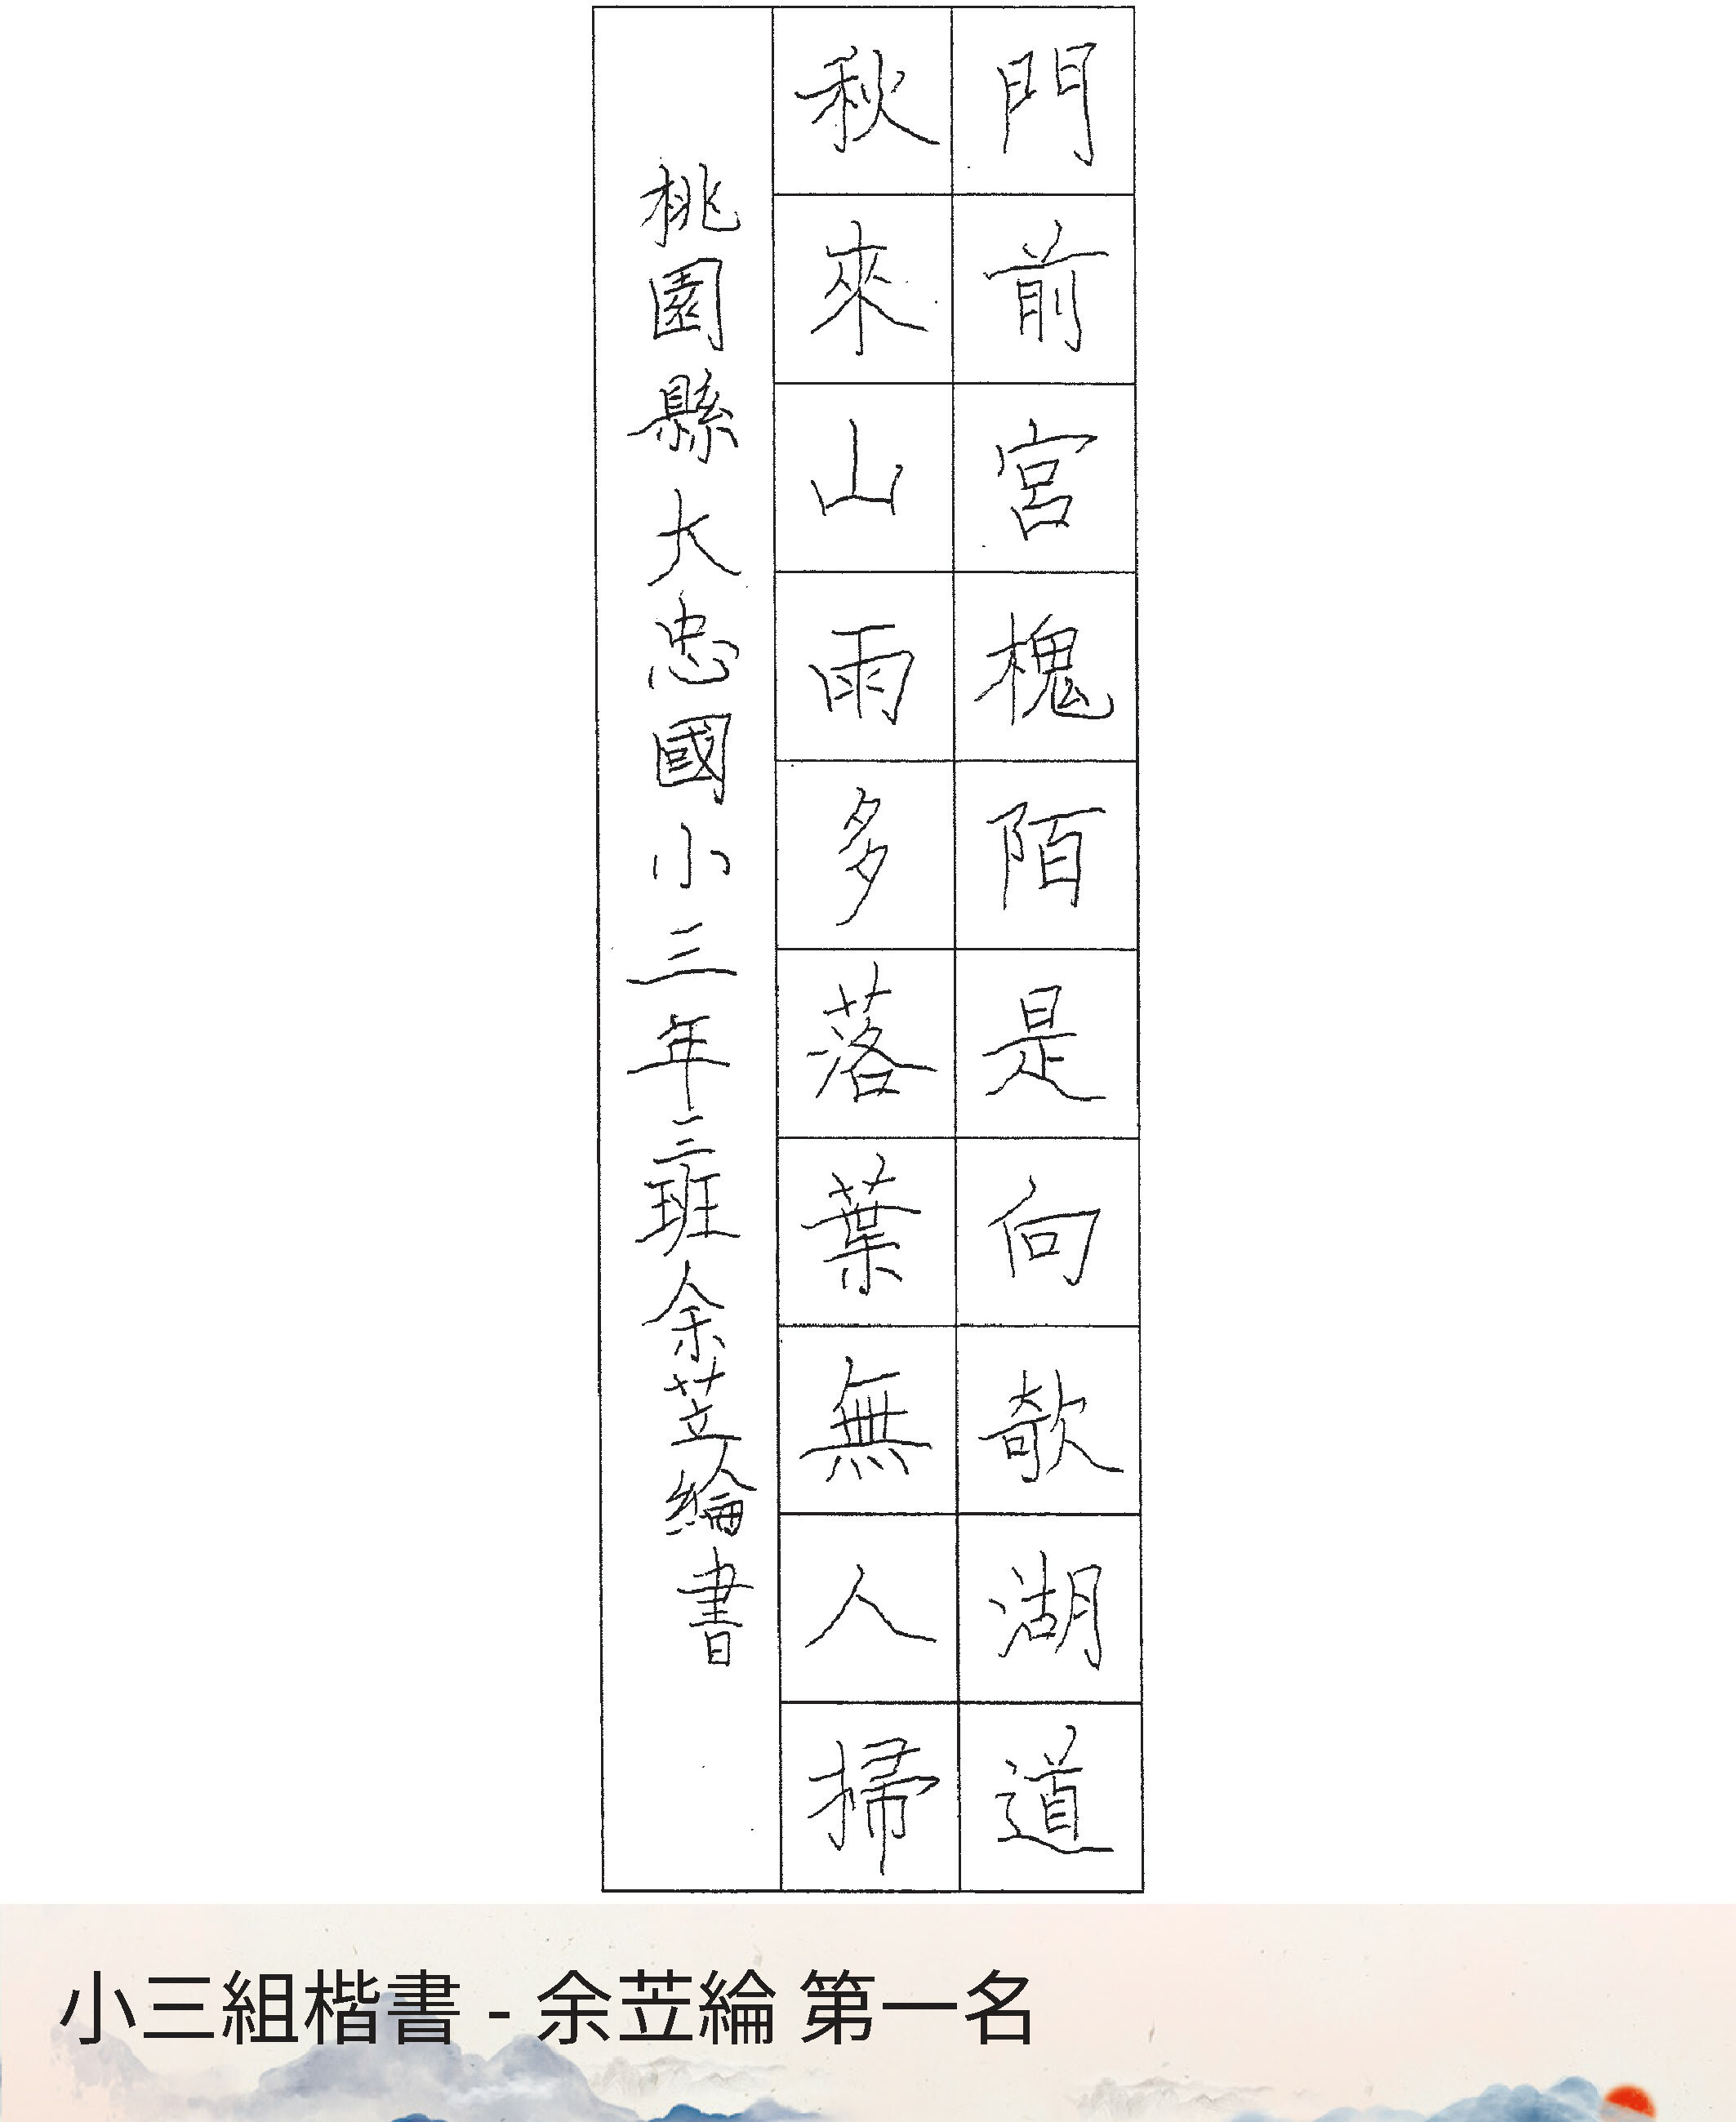 門前宮槐陌是向欹湖道
秋來山雨多落葉無人掃
桃園縣大忠國小三年三班余苙綸書
小三組楷書 - 余苙綸 第一名